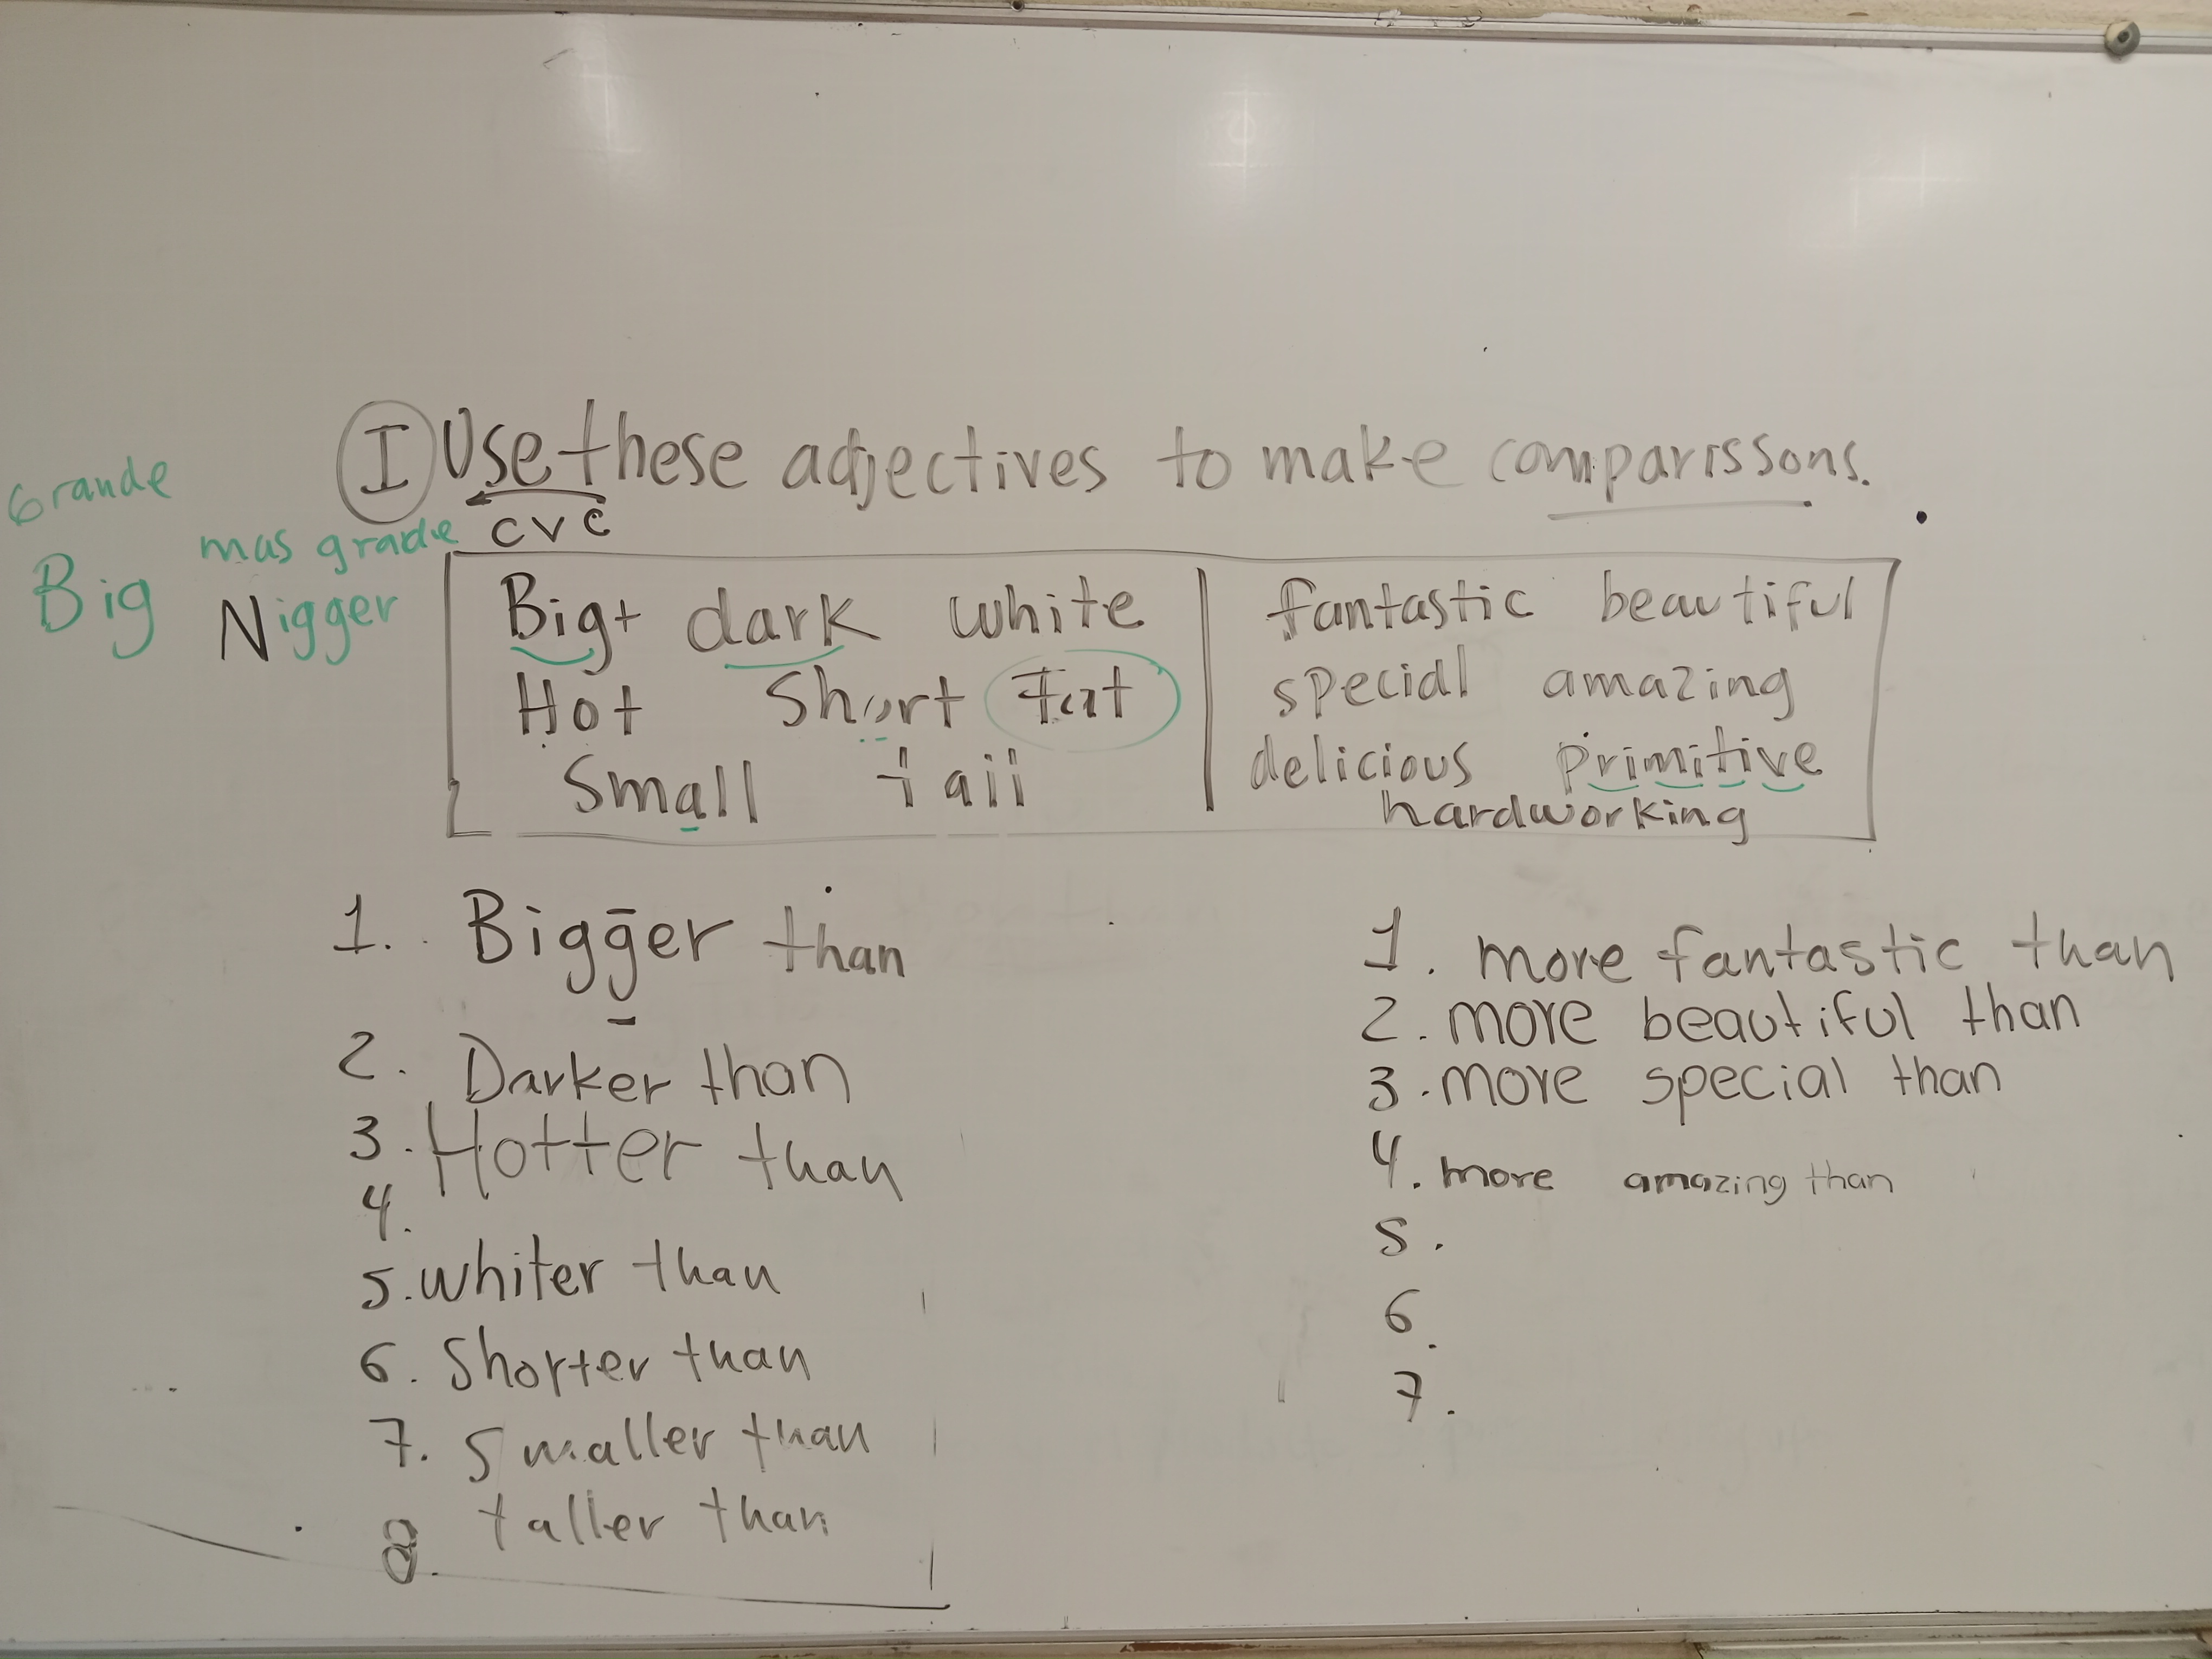 I Use these adjectives to make comparissons.
Grande
mas grade
cvc
Big
Nigger
Big+ dark white
Hot short Fat
Small tall
fantastic beautiful
special amazing
delicious primitive
hardworking
1. Bigger than
2. Darker than
3. Hotter than
4.
5. whiter than
6. Shorter than
7. Smaller than
8. taller than
1. more fantastic than
2. more beautiful than
3. more special than
4. more amazing than
5.
6.
7.